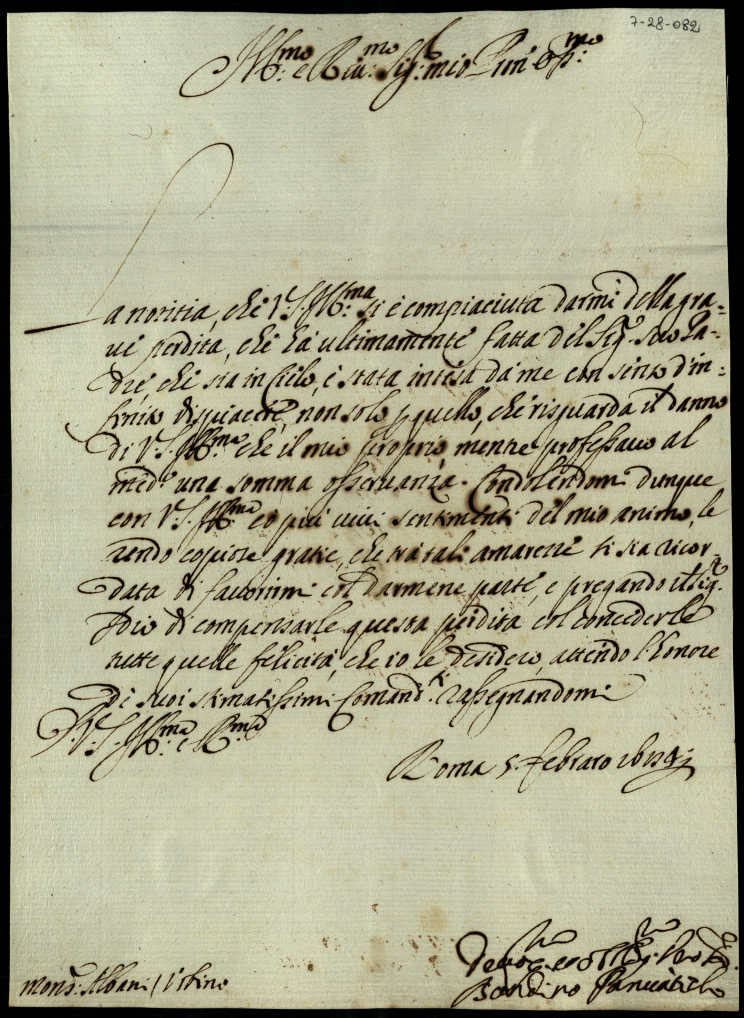 7-28-082
Ill:mo e Rev:mo Sig: mio Pron Oss:mo
La notitia, che V.S.Ill:ma si è compiaciuta darmi della gra=
ve perdita, che hà ultimamente fatta del Sig.r Suo Pa=
dre, che sia in Cielo, è stata intesa dà me con senso d'in=
finito dispiacere, non solo p quello, che risguarda il danno
di V.S.Ill:ma che il mio proprio, mentre professavo al
med.o una somma osservanza. Condolendomi dunque
con V.S.Ill:ma co più vivi sentimenti del mio animo, le
rendo copiose gratie, che trà tali amarezze si sia ricor=
data di favorirmi col darmene parte, e pregando il Sig.r
Dio di compensarle questa perdita col concederle
tutte quelle felicità, che io le desidero, attendo l'honore
di suoi stimatissimi Comand.ti rassegnandomi
D. V.S.Ill:ma e R:ma
Roma 5. Febraro
Mons.r Albani / Urbino
Bandino Panciatichi